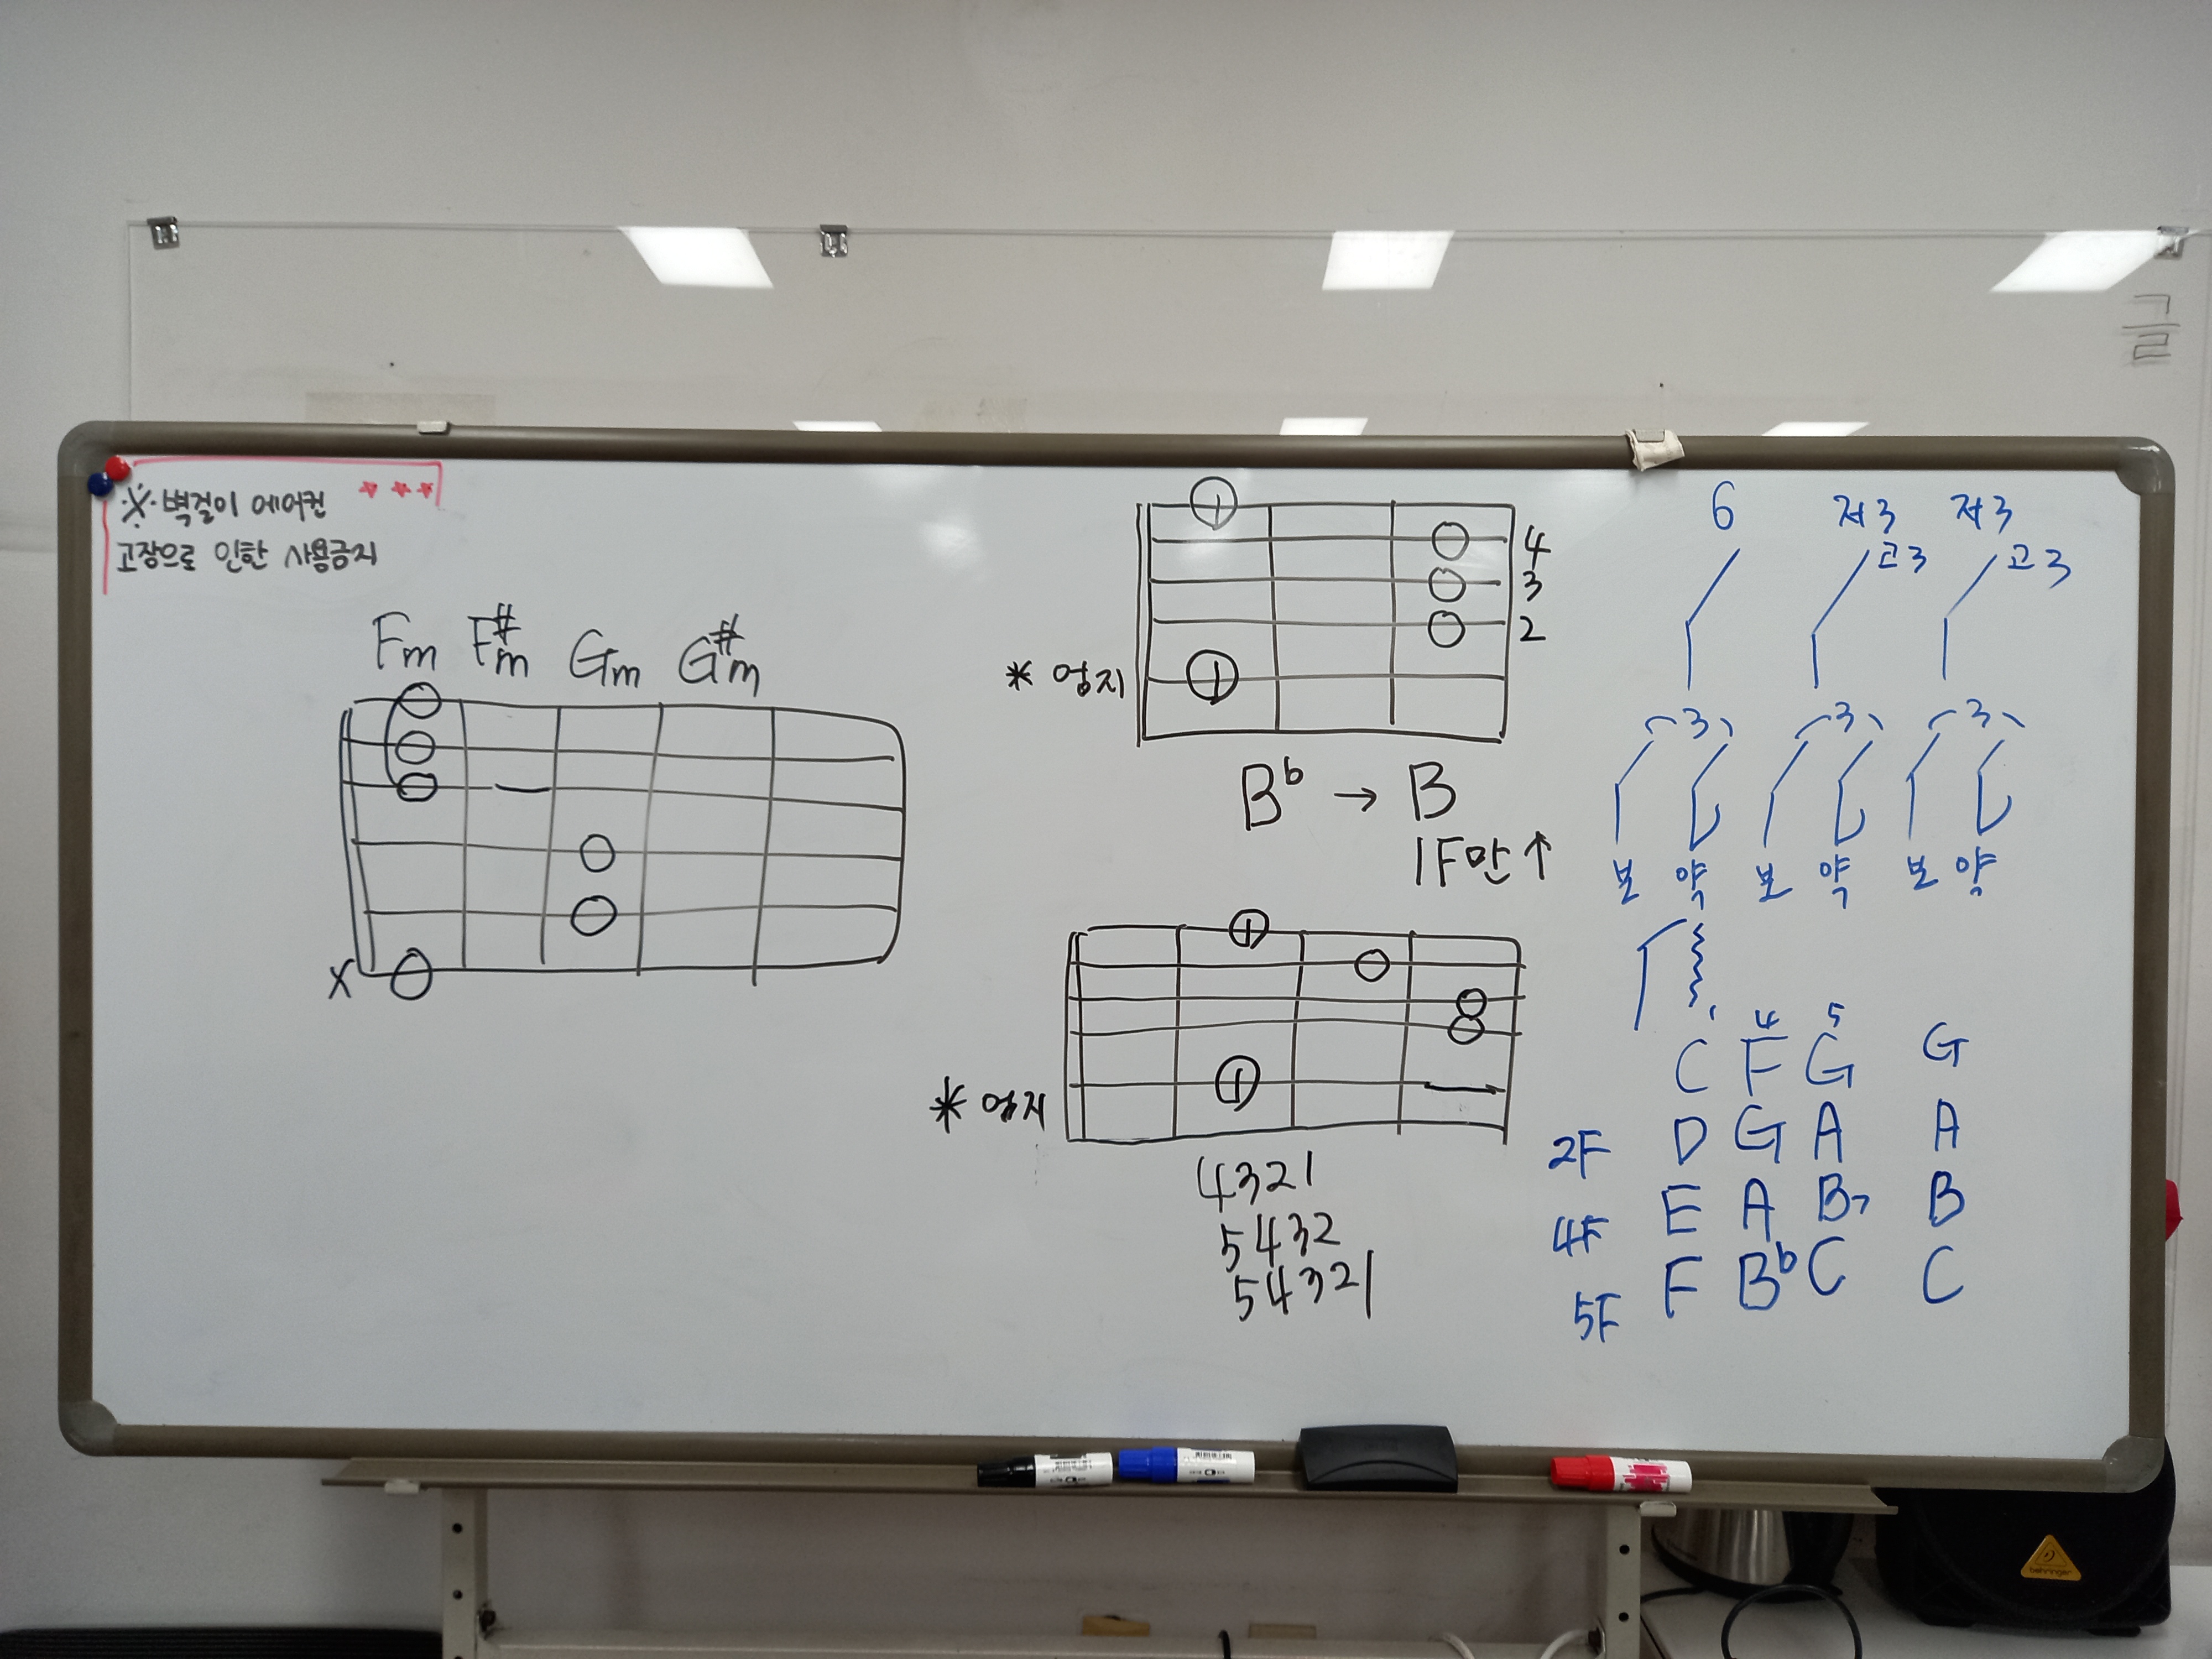 ※ 벽걸이 에어컨
고장으로 인한 사용금지
Fm F#m Gm G#m
X
1
4
3
2
* 엄지 1
B♭ → B
1F만 ↑
1
* 엄지 1
4321
5432
54321
6 저3 저3
고3 고3
3 3 3
보 약 보 약 보 약
1 4 5
C F G G
2F D G A A
4F E A B7 B
5F F B♭ C C
behringer